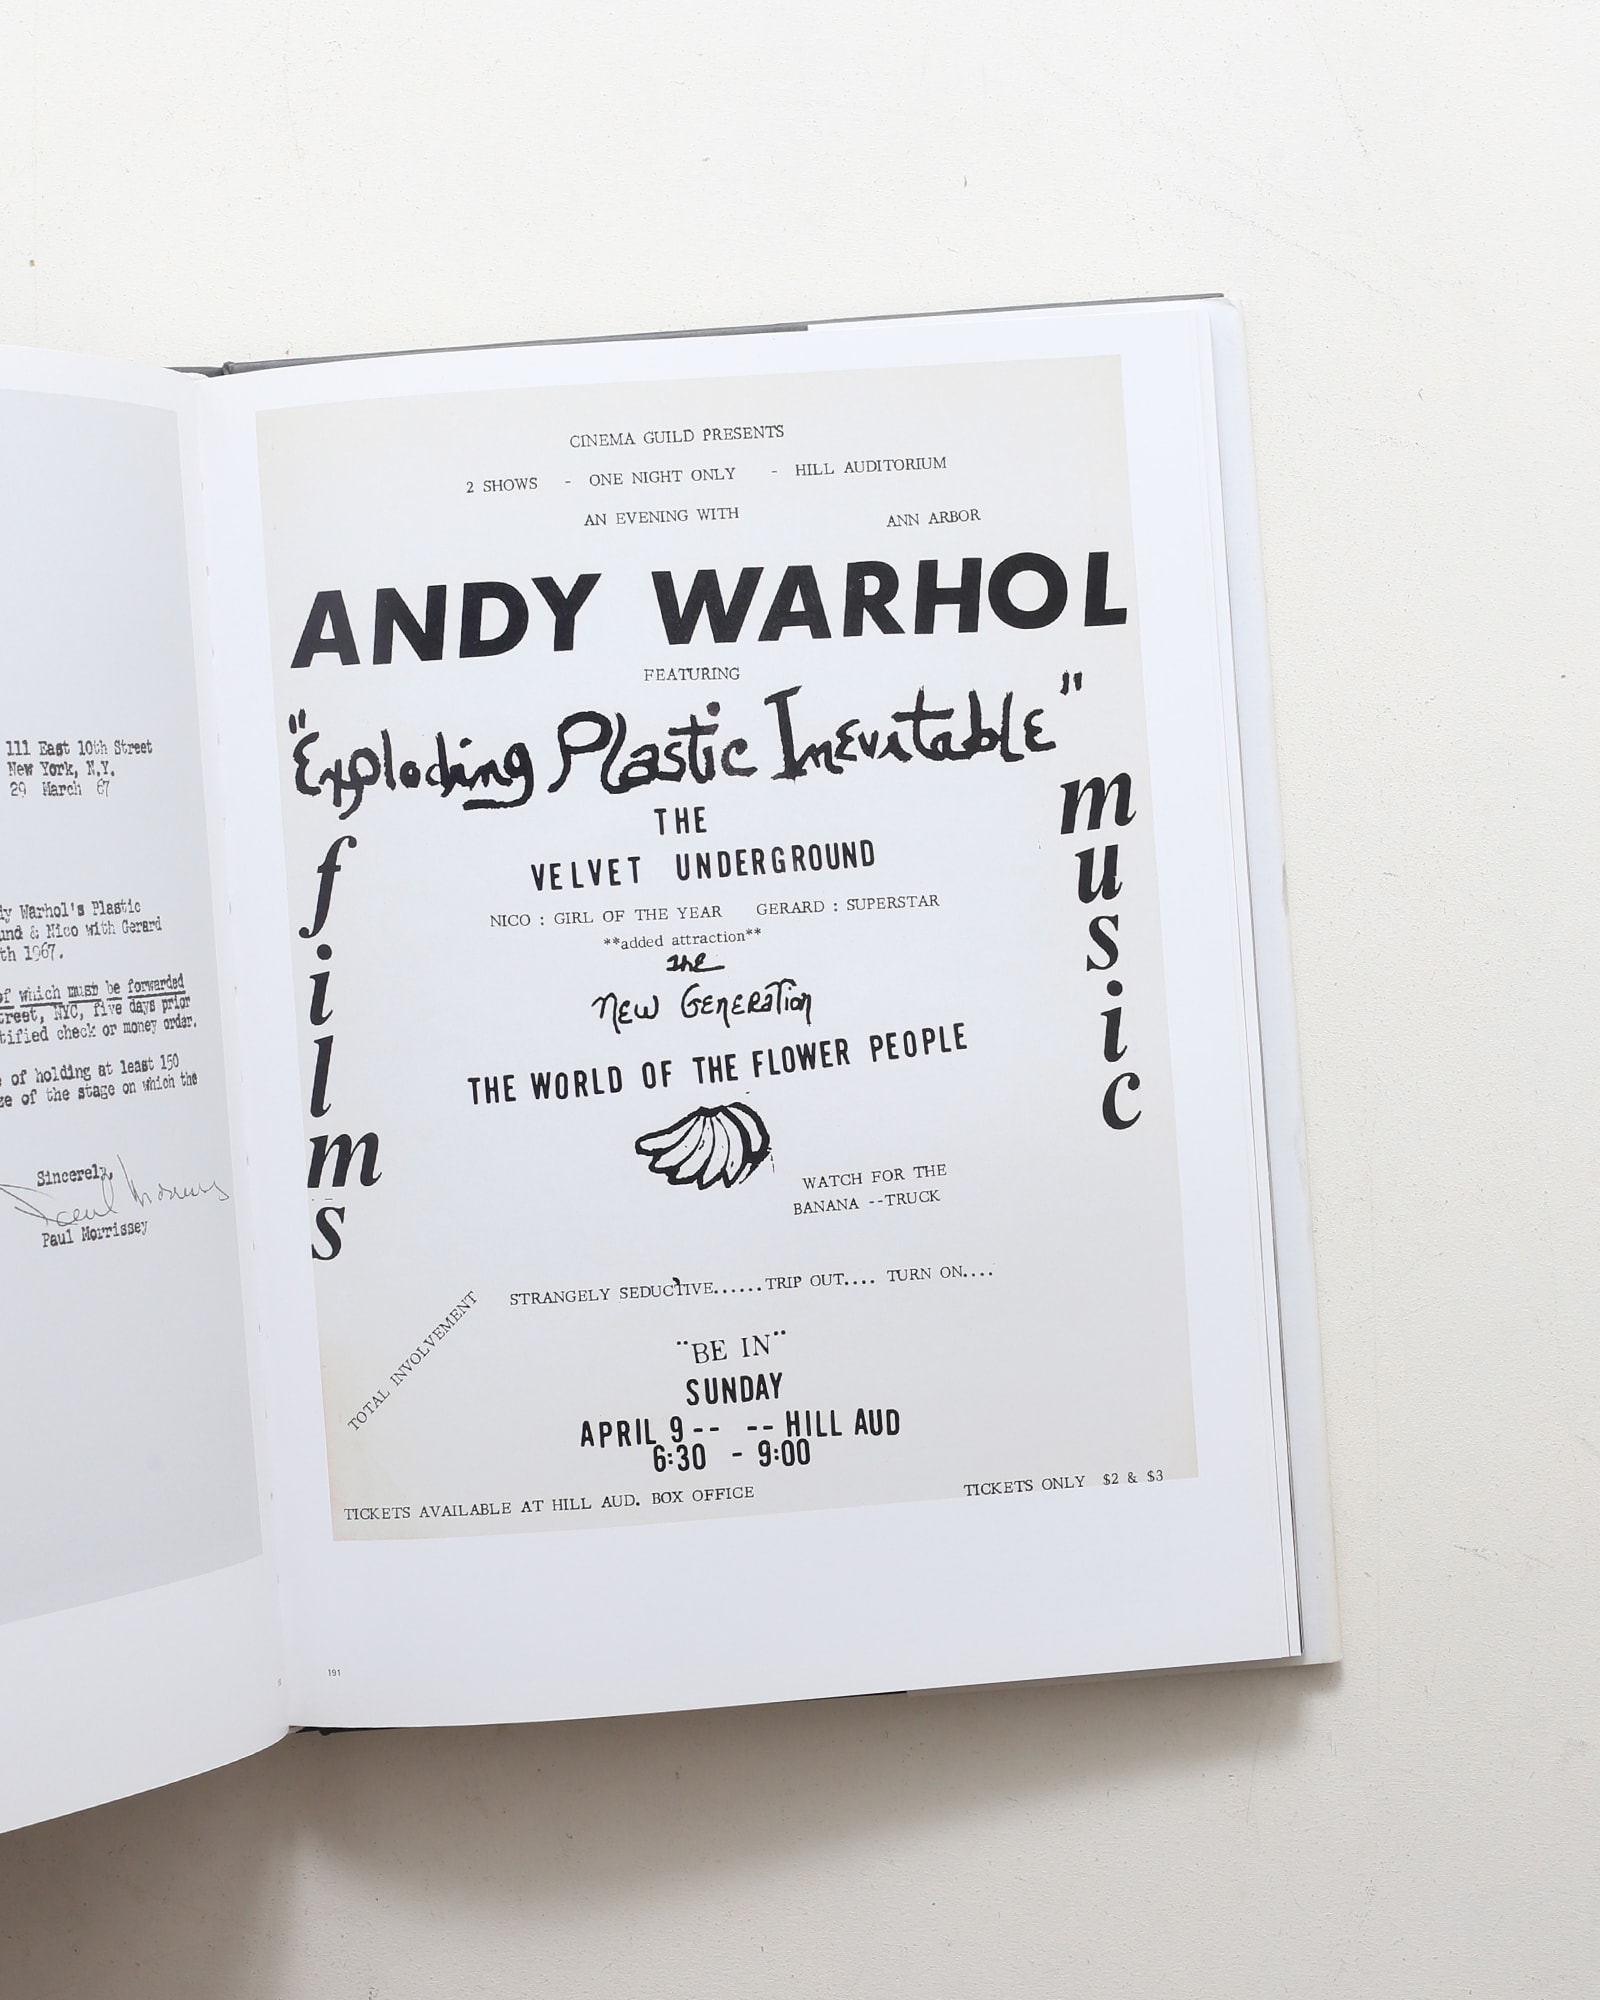 111 East 10th Street
New York, N.Y.
29 March 67
Warhol's Plastic
& Nico with Gerard
1967.
of which must be forwarded
NYC, five days prior
check or money order.
of holding at least 150
of the stage on which the
Sincerely,
Paul Morrissey
Paul Morrissey
CINEMA GUILD PRESENTS
2 SHOWS - ONE NIGHT ONLY - HILL AUDITORIUM
AN EVENING WITH ANN ARBOR
ANDY WARHOL
FEATURING
"Exploding Plastic Inevitable"
films
music
THE
VELVET UNDERGROUND
NICO : GIRL OF THE YEAR GERARD : SUPERSTAR
**added attraction**
The
New Generation
THE WORLD OF THE FLOWER PEOPLE
WATCH FOR THE
BANANA --TRUCK
STRANGELY SEDUCTIVE......TRIP OUT.... TURN ON....
TOTAL INVOLVEMENT
"BE IN"
SUNDAY
APRIL 9-- --HILL AUD
6:30 - 9:00
TICKETS AVAILABLE AT HILL AUD. BOX OFFICE TICKETS ONLY $2 & $3
191